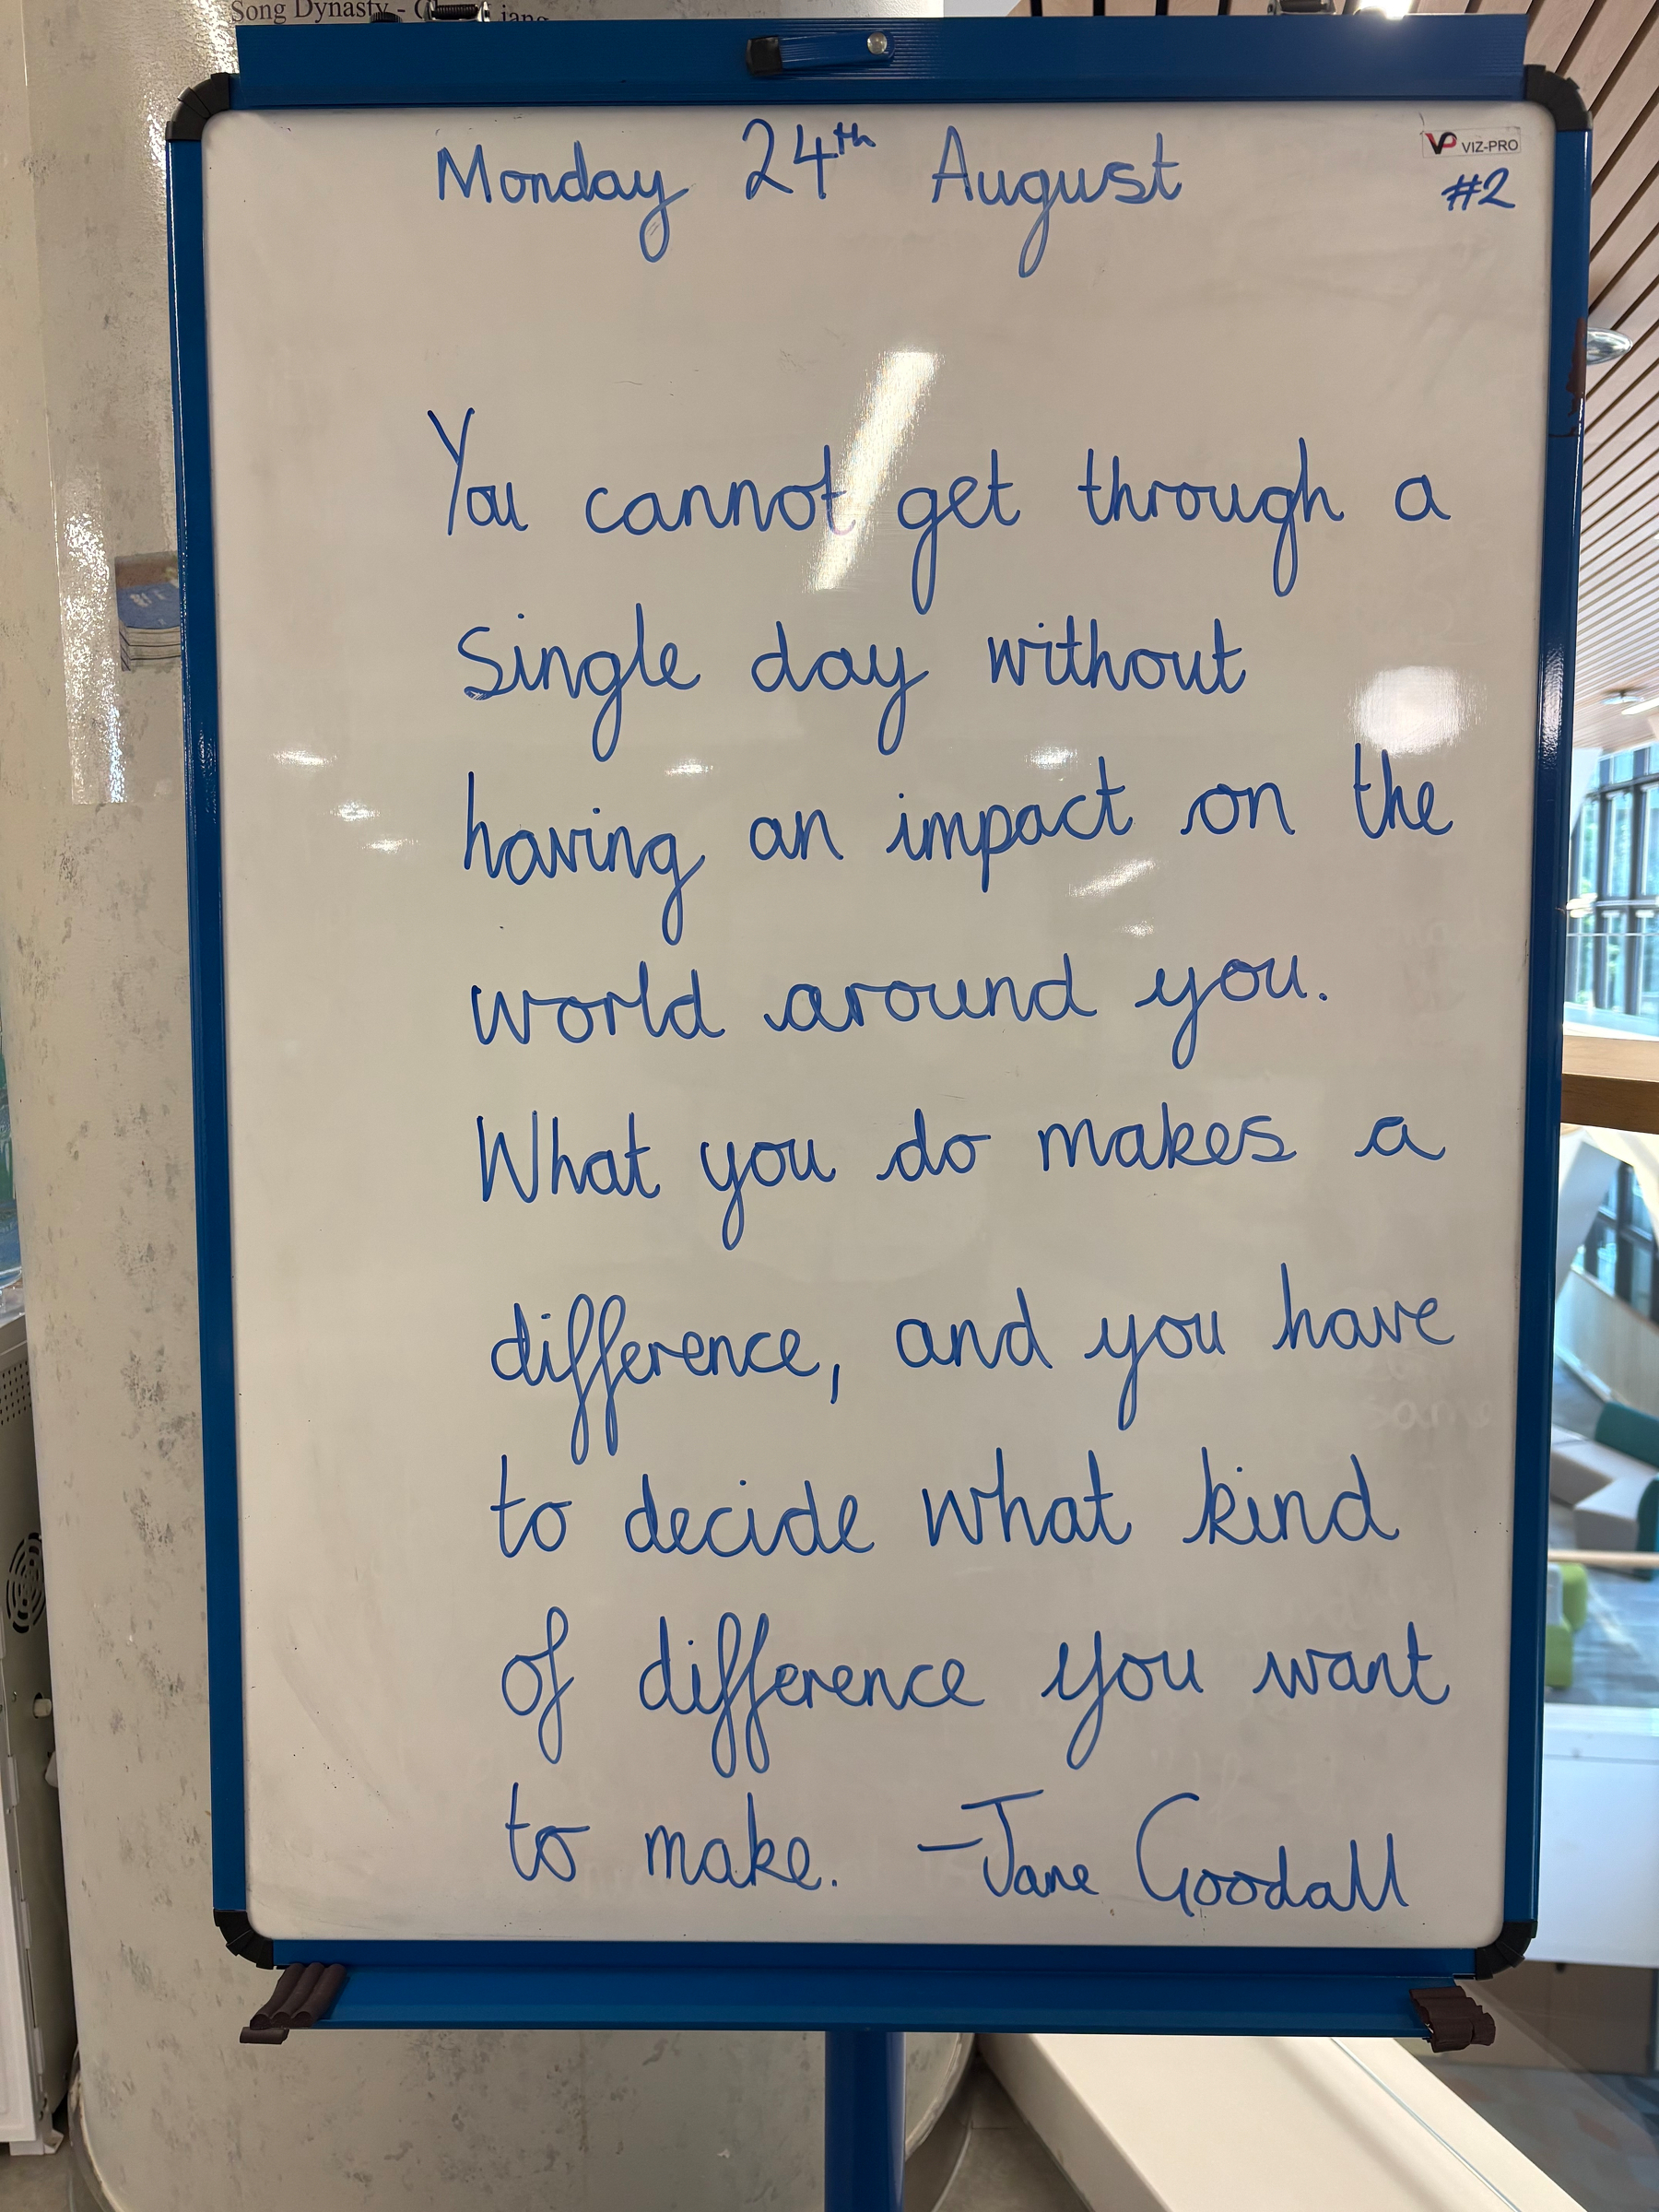 Song Dynasty -
Monday 24th August
VP VIZ-PRO
#2
You cannot get through a
single day without
having an impact on the
world around you.
What you do makes a
difference, and you have
to decide what kind
of difference you want
to make. -Jane Goodall